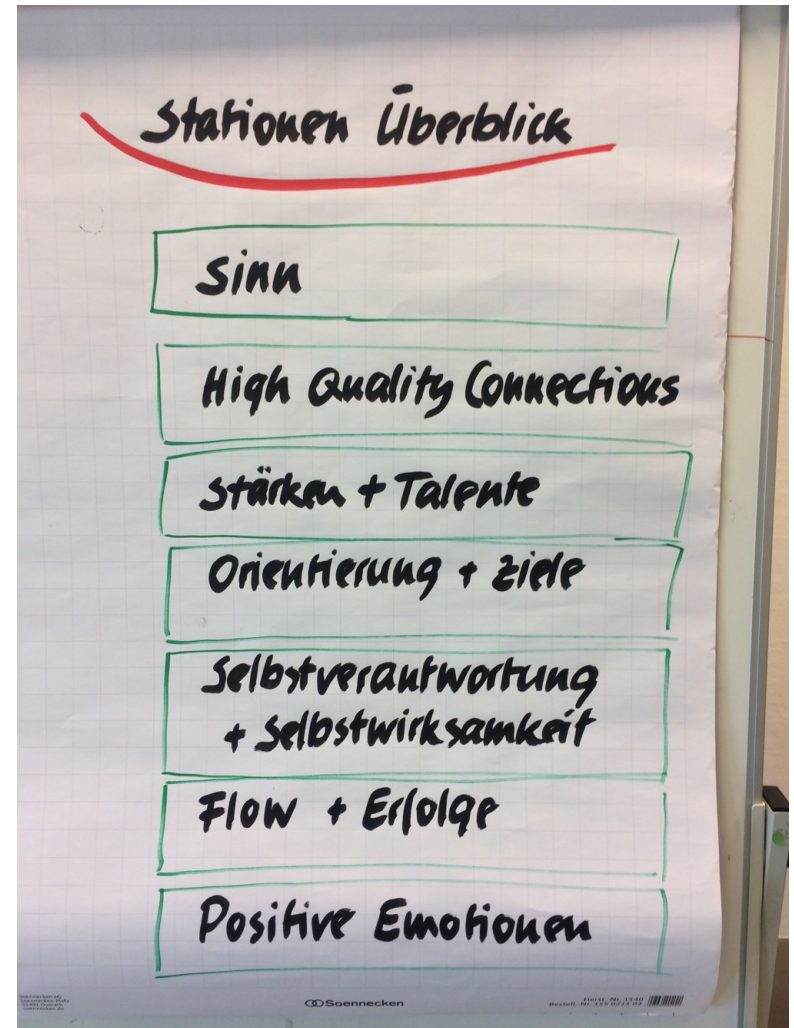 Stationen Überblick
Sinn
High Quality Connections
Stärken + Talente
Orientierung + Ziele
Selbstverantwortung
+ Selbstwirksamkeit
Flow + Erfolge
Positive Emotionen
Soennecken
Herst.-Nr. 1140
soennecken.de